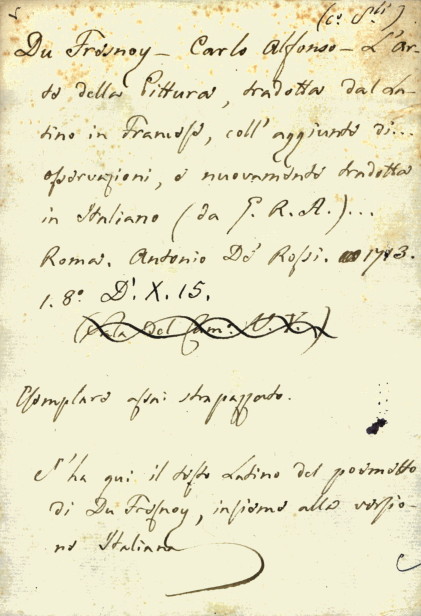 (cº Sᵗⁱ).
Du Fresnoy - Carlo Alfonso - L'Ar-
te della Pittura, tradotta dal La-
tino in Francese, coll'aggiunta di...
osservazioni, e nuovamente tradotta
in Italiano (da G. R. A.)...
Roma. Antonio De' Rossi. 1713.
1. 8º D'. X. 15.
(Sala del V. V.)
Esemplare assai strapazzato.
S'ha qui il testo Latino del poemetto
di Du Fresnoy, insieme alla versio-
ne Italiana